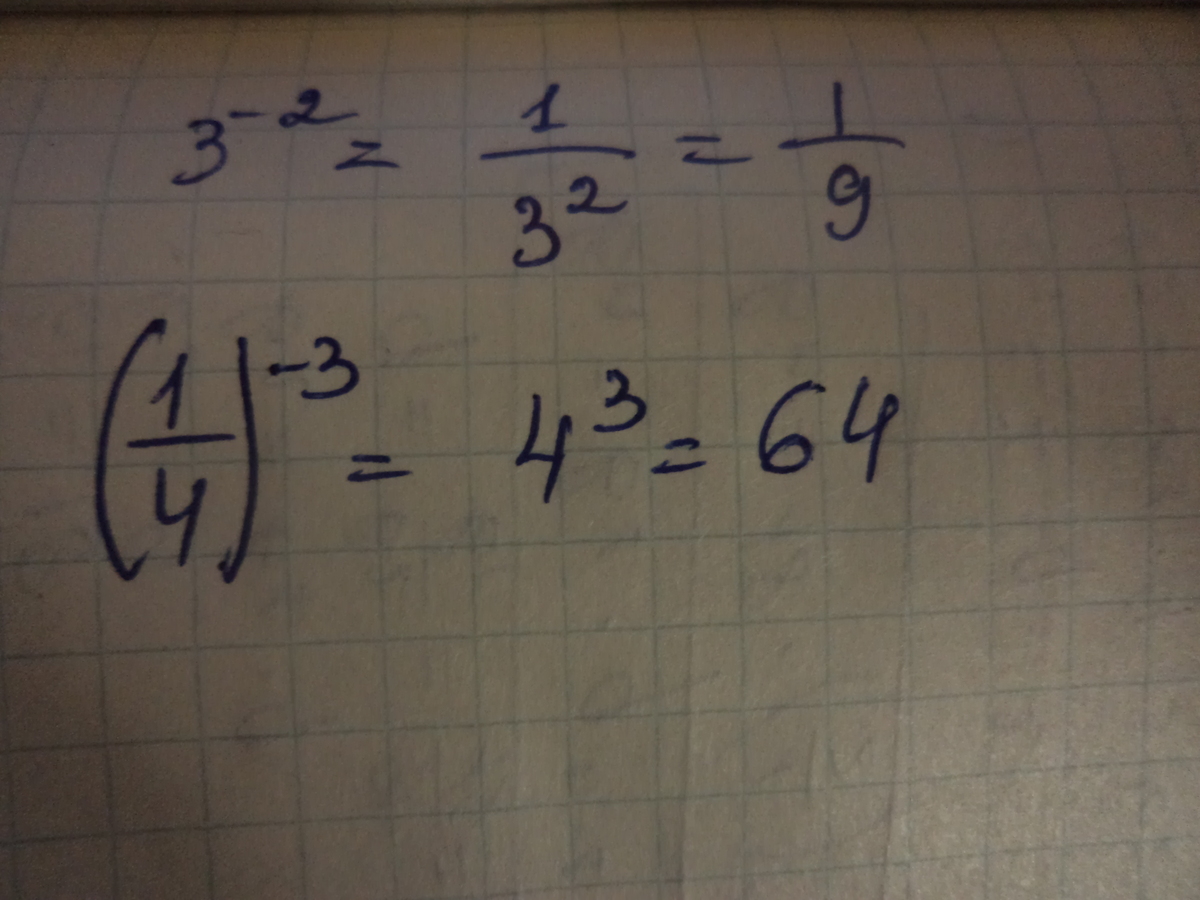 3⁻² = 1/3² = 1/9
(1/4)⁻³ = 4³ = 64